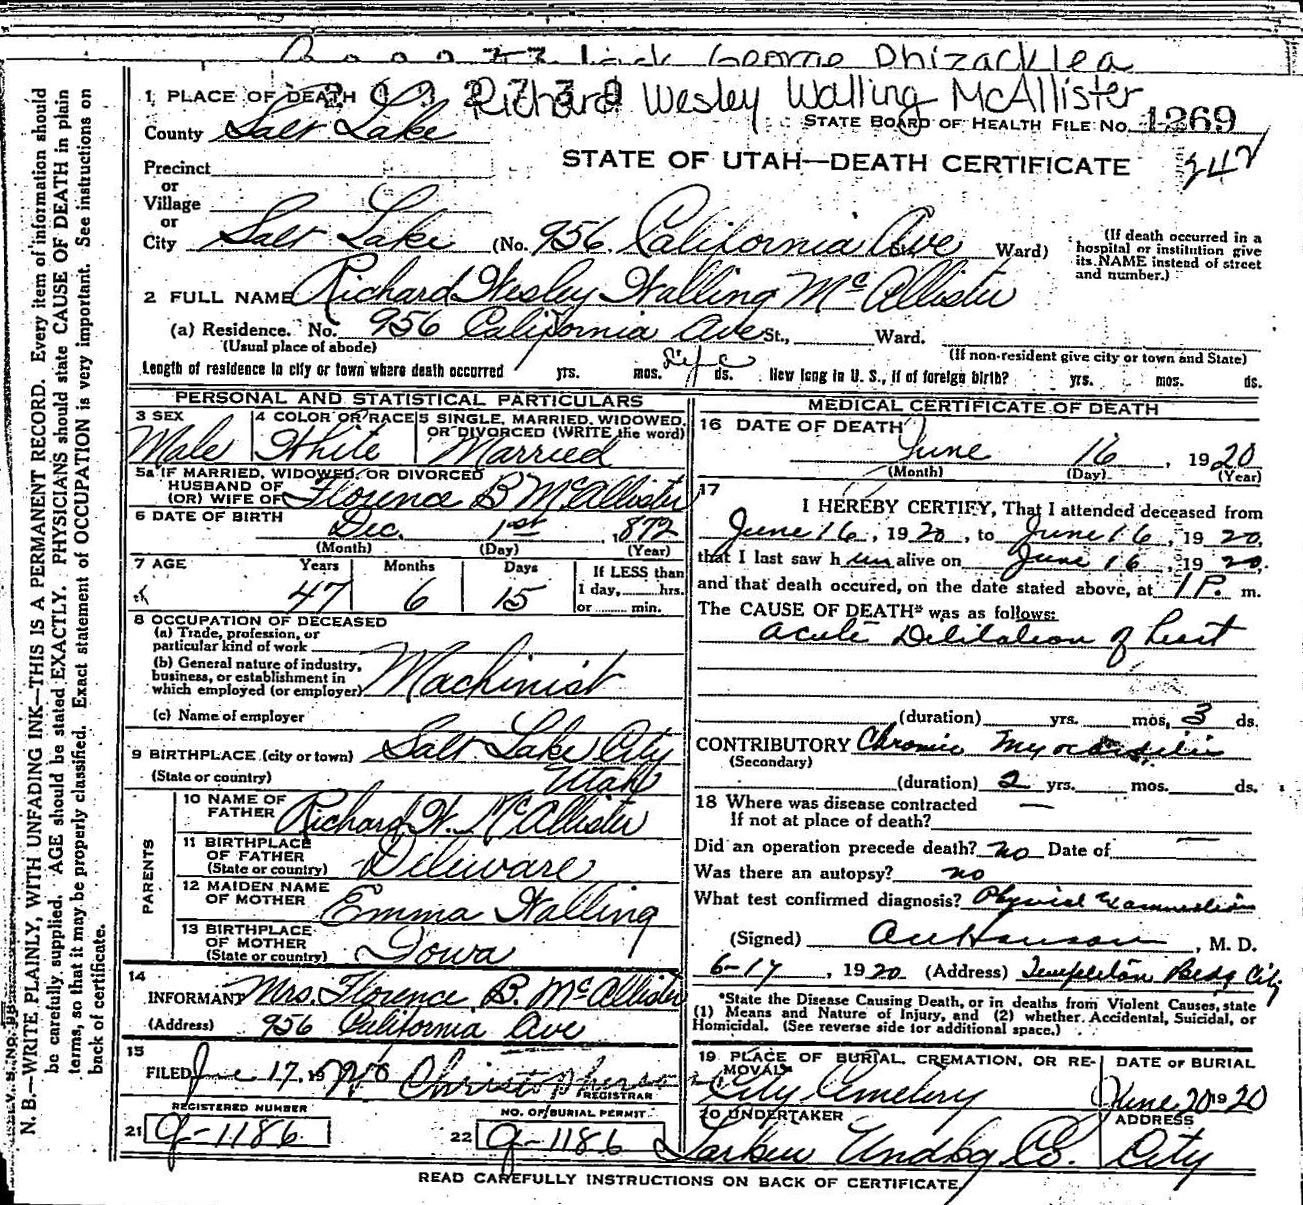 George Phizacklea
Richard Wesley Walling McAllister
1 PLACE OF DEATH
STATE BOARD OF HEALTH FILE No. 1269
County Salt Lake
STATE OF UTAH—DEATH CERTIFICATE
342
Precinct
or
Village
or
City Salt Lake (No. 956 California Ave St. Ward)
(If death occurred in a hospital or institution give its NAME instead of street and number.)
2 FULL NAME Richard Wesley Walling McAllister
(a) Residence. No. 956 California Ave St., Ward.
(Usual place of abode) (If non-resident give city or town and State)
Length of residence in city or town where death occurred yrs. mos. Life ds. How long in U. S., if of foreign birth? yrs. mos. ds.
PERSONAL AND STATISTICAL PARTICULARS
3 SEX Male
4 COLOR OR RACE White
5 SINGLE, MARRIED, WIDOWED, OR DIVORCED (WRITE the word) Married
5a IF MARRIED, WIDOWED, OR DIVORCED
HUSBAND OF
(OR) WIFE OF Florence B McAllister
6 DATE OF BIRTH Dec. 1st, 1872
(Month) (Day) (Year)
7 AGE Years Months Days If LESS than
47 6 15 1 day, hrs.
or min.
8 OCCUPATION OF DECEASED
(a) Trade, profession, or
particular kind of work
(b) General nature of industry,
business, or establishment in
which employed (or employer) Machinist
(c) Name of employer
9 BIRTHPLACE (city or town) Salt Lake City
(State or country) Utah
PARENTS
10 NAME OF FATHER Richard W. McAllister
11 BIRTHPLACE OF FATHER (State or country) Deliware
12 MAIDEN NAME OF MOTHER Emma Walling
13 BIRTHPLACE OF MOTHER (State or country) Iowa
14
INFORMANT Mrs. Florence B. McAllister
(Address) 956 California Ave
15
FILED June 17, 19 20 Christopherson
REGISTRAR
REGISTERED NUMBER
21 G-1186
NO. OF BURIAL PERMIT
22 G-1186
MEDICAL CERTIFICATE OF DEATH
16 DATE OF DEATH June 16, 1920
(Month) (Day) (Year)
17
I HEREBY CERTIFY, That I attended deceased from
June 16, 1920, to June 16, 1920,
that I last saw him alive on June 16, 1920,
and that death occured, on the date stated above, at 1 P. m.
The CAUSE OF DEATH* was as follows:
Acute Delitation of heart
(duration) yrs. mos, 3 ds.
CONTRIBUTORY Chronic Myocarditis
(Secondary)
(duration) 2 yrs. mos. ds.
18 Where was disease contracted
If not at place of death? —
Did an operation precede death? no Date of —
Was there an autopsy? no
What test confirmed diagnosis? Physical Examination
(Signed) Hanson, M. D.
6-17, 1920 (Address) Templeton Bldg City
*State the Disease Causing Death, or in deaths from Violent Causes, state
(1) Means and Nature of Injury, and (2) whether Accidental, Suicidal, or
Homicidal. (See reverse side for additional space.)
19 PLACE OF BURIAL, CREMATION, OR REMOVAL City Cemetery
DATE OF BURIAL June 20 1920
20 UNDERTAKER Larkin Undtg Co.
ADDRESS City
READ CAREFULLY INSTRUCTIONS ON BACK OF CERTIFICATE.
N. B.—WRITE PLAINLY, WITH UNFADING INK—THIS IS A PERMANENT RECORD. Every item of information should
be carefully supplied. AGE should be stated EXACTLY. PHYSICIANS should state CAUSE OF DEATH in plain
terms, so that it may be properly classified. Exact statement of OCCUPATION is very important. See instructions on
back of certificate.